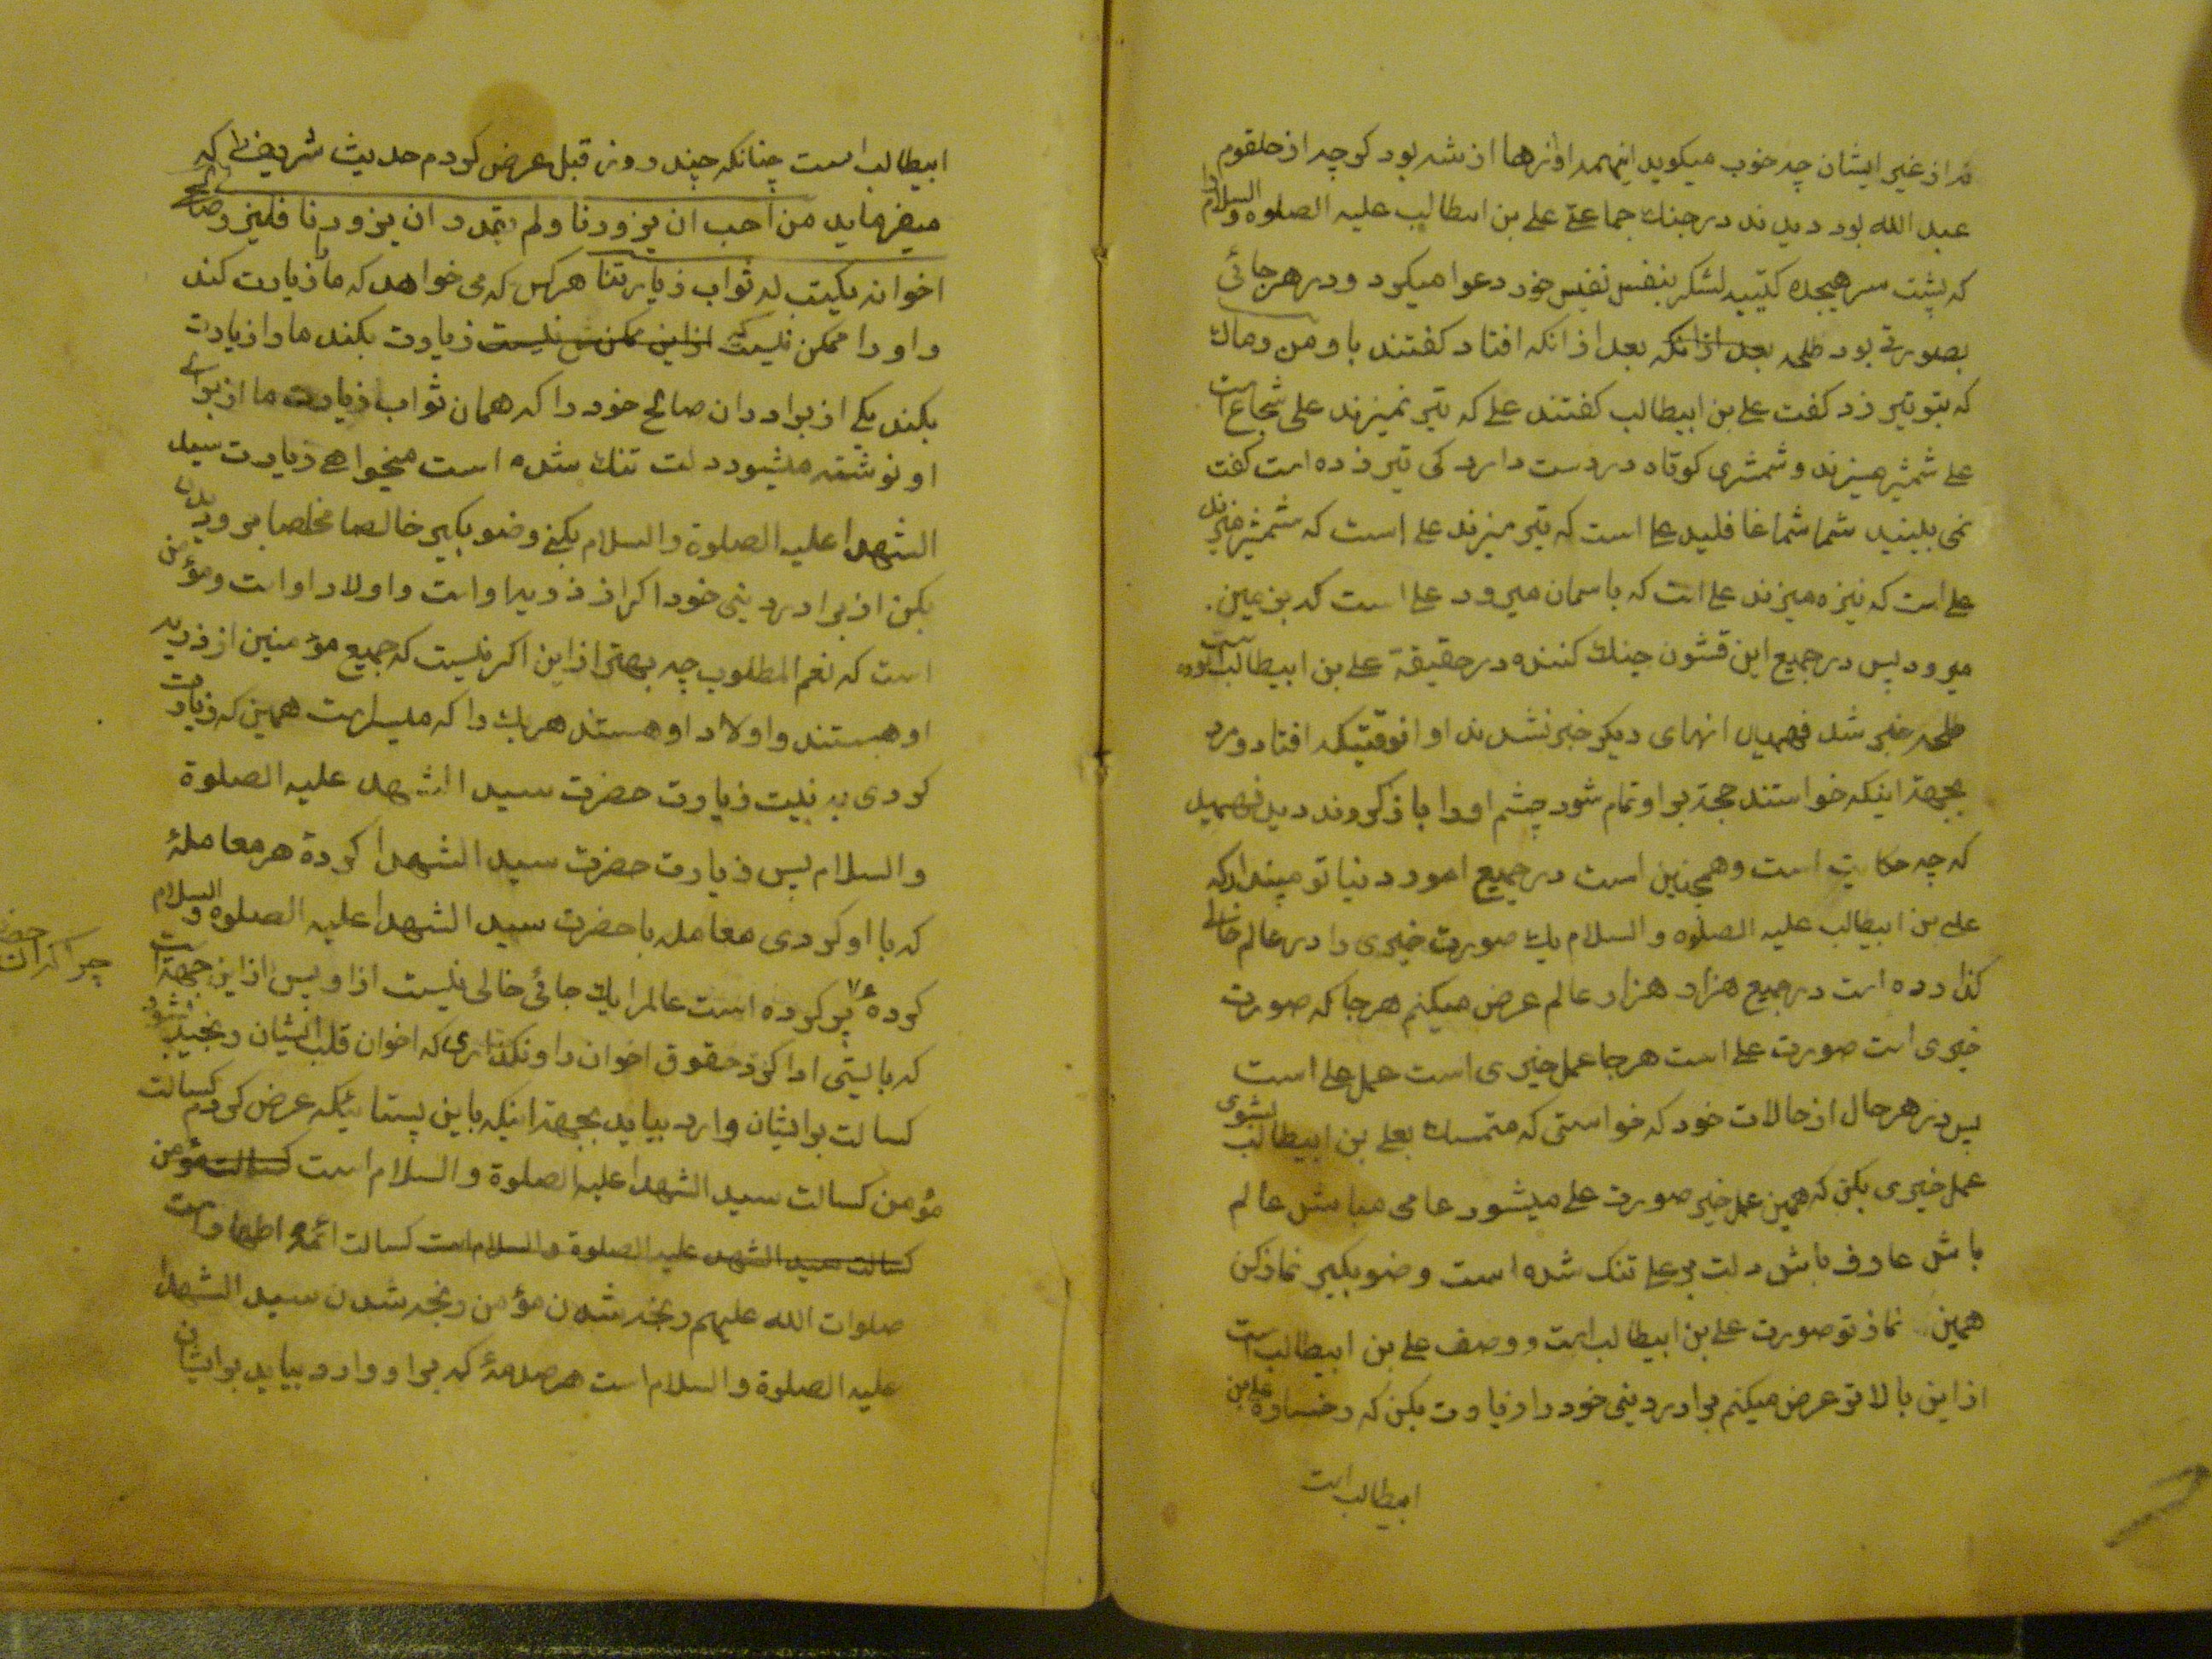 نه از غیر ایشان چه خوب میکوید اینهمه اوازها از شه بود کرچه از حلقوم
عبد الله بود دیدند در جنك جماعتی علی بن ابیطالب علیه الصلوه والسلام را
که پشت سر هیجده کتیبه لشکر بنفس نفیس خود دعوا میکرد و در هر جائی
بصورتی بود طلحه بعد ازانکه بعد ازانکه افتاد کفتند باو من رماك
که بتو تیر زد کفت علی بن ابیطالب کفتند علی که تیر نمیزند علی شجاع است
علی شمشیر میزند و شمشیری کوتاه در دست دارد کی تیر زده است کفت
نمی بینید شما شما غافلید علی است که تیر میزند علی است که شمشیر میزند
علی است که نیزه میزند علی است که باسمان میرود علی است که بزمین
میرود پس در جمیع این قشون جنك کننده در حقیقة علی بن ابیطالب است بوده
طلحه خبر شد فهمید انهای دیکر خبر نشدند او انوقتیکه افتاد و مرد
بجهة اینکه خواستند حجة بر او تمام شود چشم او را باز کردند دید فهمید
که چه حکایت است و همچنین است در جمیع امور دنیا تو مپندار که
علی بن ابیطالب علیه الصلوه و السلام یك صورت خیری را در عالم خالی
کذارده است در جمیع هزار هزار عالم عرض میکنم هر جا که صورت
خیری است صورت علی است هر جا عمل خیری است عمل علی است
پس در هر حال از حالات خود که خواستی که متمسك بعلی بن ابیطالب بشوی
عمل خیری بکن که همین عمل خیر صورت علی میشود عامی مباش عالم
باش عارف باش دلت بر علی تنك شده است وضو بکیر نماز کن
همین نماز تو صورت علی بن ابیطالب است و وصف علی بن ابیطالب است
از این بالاتر عرض میکنم برادر دینی خود را زیارت بکن که رخساره علی بن
ابیطالب است
ابیطالب است چنانکه چند روز قبل عرض کردم حدیث شریفی که
میفرماید من احب ان یزورنا ولم یقدر ان یزورنا فلیزر صالح
اخوانه یکتب له ثواب زیارتنا هر کس که می خواهد که ما را زیارت کند
و او را ممکن نیست که از این ممکن نیست زیارت بکند ما را زیارت
بکند یکی از برادران صالح خود را که همان ثواب زیارت ما از برای
او نوشته میشود دلت تنك شده است میخواهی زیارت سید
الشهدا علیه الصلوة والسلام بکنی وضو بکیر خالصا مخلصا برو دیدن
بکن از برادر دینی خود اکر از ذریه او است و اولاد او است و مؤمن
است که نعم المطلوب چه بهتر از این اکر نیست که جمیع مؤمنین از ذریه
او هستند و اولاد او هستند هر یك را که میسر است همین که زیارت
کردی به نیت زیارت حضرت سید الشهدا علیه الصلوة
والسلام پس زیارت حضرت سید الشهدا کردهٔ هر معاملهٔ
که با او کردی معامله با حضرت سید الشهدا علیه الصلوه والسلام
کردهٔ پر کرده است عالم را یك جائی خالی نیست از او پس از این جهة است
که بایستی ادا کرد حقوق اخوان را و نکذاری که اخوان قلب ایشان رنجیده شود
کسالت بر ایشان وارد بیاید بجهة اینکه باین پستائیکه عرض کردم کسالت
مؤمن کسالت سید الشهدا علیه الصلوة و السلام است کسالت مؤمن
کسالت سید الشهدا علیه الصلوة والسلام است کسالت ائمه اطهار است
صلوات الله علیهم رنجه شدن مؤمن رنجه شدن سید الشهدا
علیه الصلوة و السلام است هر صدمهٔ که بر او وارد بیاید بر ایشان
چرا که ان حضرت